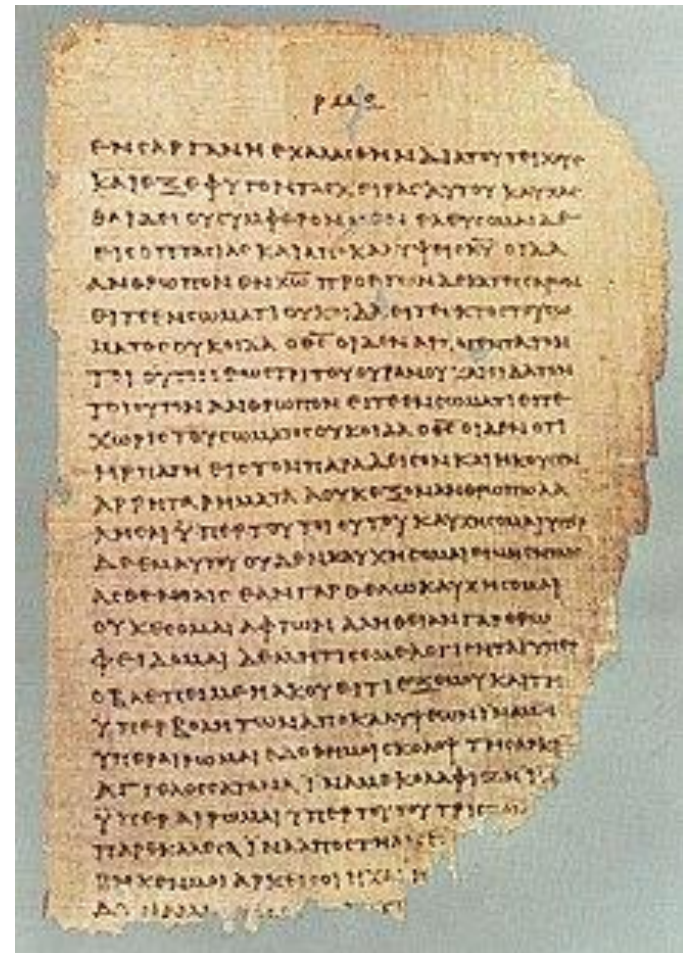 ρμϛ
ϲⲛ
ΕΝϹΑΡΓΑΝΗΕΧΑΛΑϹΘΗΝΔΙΑΤΟΥΤΕΙΧΟΥϹ
ΚΑΙΕΞΕΦΥΓΟΝΤΑϹΧΕΙΡΑϹΑΥΤΟΥΚΑΥΧΑϹ
ΘΑΙΔΕΙΟΥϹΥΜΦΕΡΟΝΜΕΝΕΛΕΥϹΟΜΑΙΔΕ
ΕΙϹΟΠΤΑϹΙΑϹΚΑΙΑΠΟΚΑΛΥΨΕΙϹΚ̅Υ̅ΟΙΔΑ
ΑΝΘΡΩΠΟΝΕΝΧ̅Ω̅ΠΡΟΕΤΩΝΔΕΚΑΤΕϹϹΑΡΩΝ
ΕΙΤΕΕΝϹΩΜΑΤΙΟΥΚΟΙΔΑΕΙΤΕΕΚΤΟϹΤΟΥϹΩ
ΜΑΤΟϹΟΥΚΟΙΔΑΟΘ̅Ϲ̅ΟΙΔΕΝΑΡΠΑΓΕΝΤΑΤΟΝ
ΤΟΙΟΥΤΟΝΕΩϹΤΡΙΤΟΥΟΥΡΑΝΟΥΚΑΙΟΙΔΑΤΟΝ
ΤΟΙΟΥΤΟΝΑΝΘΡΩΠΟΝΕΙΤΕΕΝϹΩΜΑΤΙΕΙΤΕ
ΧΩΡΙϹΤΟΥϹΩΜΑΤΟϹΟΥΚΟΙΔΑΟΘ̅Ϲ̅ΟΙΔΕΝΟΤΙ
ΗΡΠΑΓΗΕΙϹΤΟΝΠΑΡΑΔΕΙϹΟΝΚΑΙΗΚΟΥϹΕΝ
ΑΡΡΗΤΑΡΗΜΑΤΑΑΟΥΚΕΞΟΝΑΝΘΡΩΠΩΛΑ
ΛΗϹΑΙΫΠΕΡΤΟΥΤΟΙΟΥΤΟΥΚΑΥΧΗϹΟΜΑΙΥΠΕΡ
ΔΕΕΜΑΥΤΟΥΟΥΔΕΝΚΑΥΧΗϹΟΜΑΙΕΙΜΗΕΝΤΑΙϹ
ΑϹΘΕΝΕΙΑΙϹΕΑΝΓΑΡΘΕΛΩΚΑΥΧΗϹΟΜΑΙ
ΟΥΚΕϹΟΜΑΙΑΦΡΩΝΑΛΗΘΕΙΑΝΓΑΡΕΡΩ
ΦΕΙΔΟΜΑΙΔΕΜΗΤΙϹΕΜΕΛΟΓΙϹΗΤΑΙΥΠΕΡ
ΟΒΛΕΠΕΙΜΕΗΑΚΟΥΕΙΤΙΕΞΕΜΟΥΚΑΙΤΗ
ΫΠΕΡΒΟΛΗΤΩΝΑΠΟΚΑΛΥΨΕΩΝΙΝΑΜΗ
ΥΠΕΡΑΙΡΩΜΑΙΕΔΟΘΗΜΟΙϹΚΟΛΟΨΤΗϹΑΡΚΙ
ΑΓΓΕΛΟϹϹΑΤΑΝΑΪΝΑΜΕΚΟΛΑΦΙΖΗΙΝΑ
ΫΠΕΡΑΙΡΩΜΑΙΥΠΕΡΤΟΥΤΟΥΤΡΙϹ
ΠΑΡΕΚΑΛΕϹΑΪΝΑΑΠΟϹΤΗ
ΚΕΝΜΟΙΑΡΚΕΙϹΟΙΗΧΑ